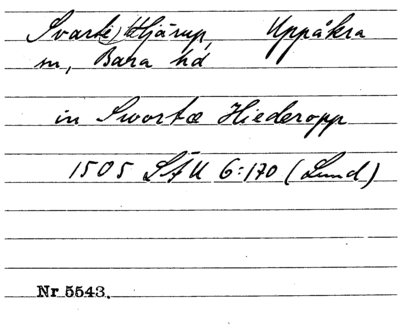 Svarte Hjärup, Uppåkra
sn, Bara hd
in Swortæ Hiederopp
1505 LÄU 6:170 (Lund)
Nr 5543.